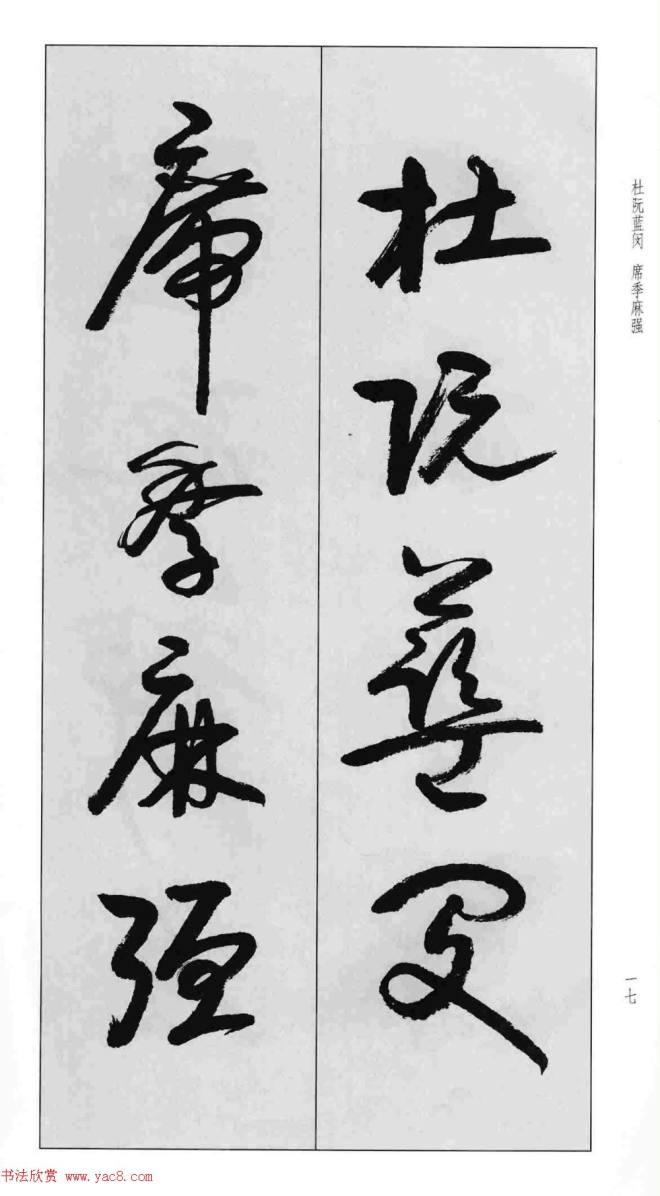 杜阮蓝闵
席季麻强
杜阮蓝闵 席季麻强
一七
书法欣赏 www.yac8.com